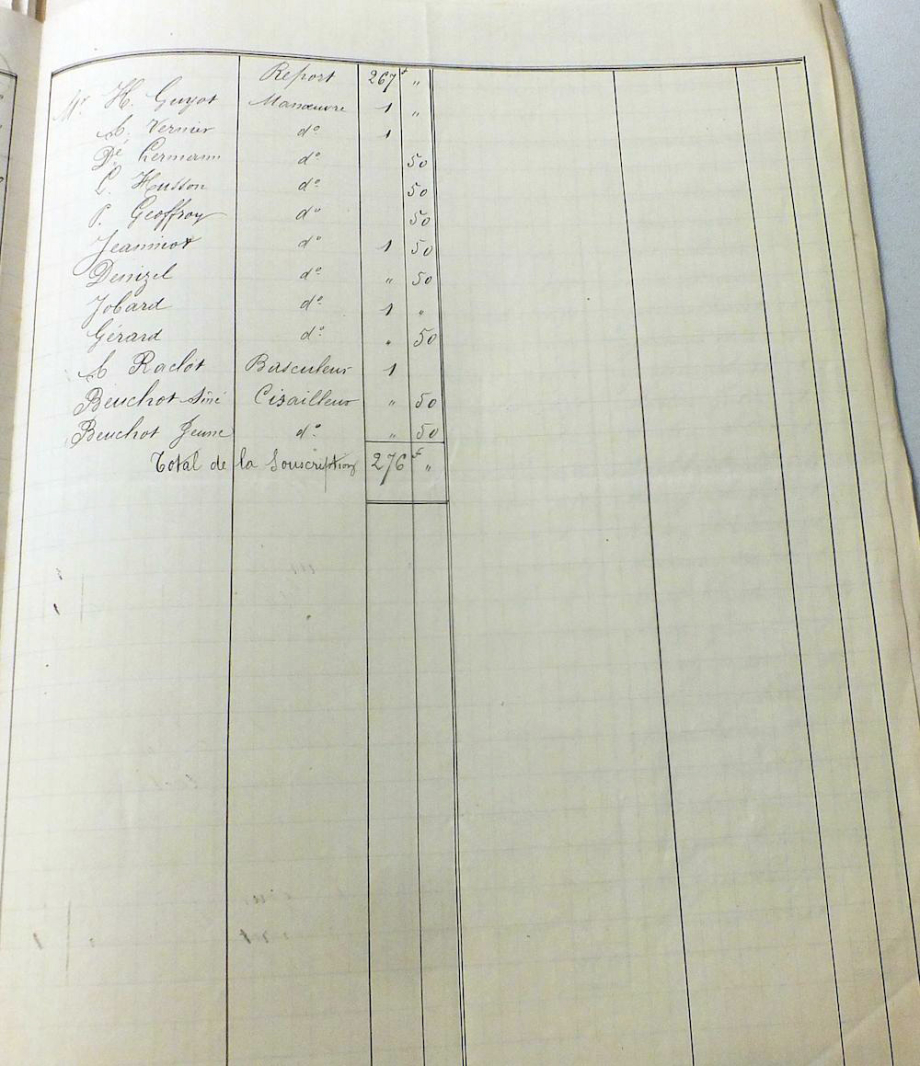 Report 267f "
Mr H. Guyot Manœuvre 1 "
A. Vernier do 1
Lermann do 50
L. Husson do 50
P. Geoffroy do 50
Jeanninot do 1 50
Denizel do " 50
Jobard do 1 "
Gérard do " 50
A Raclot Basculeur 1
Beuchot Cisailleur " 50
Beuchot Jeune do " 50
Total de la Souscription 276f "